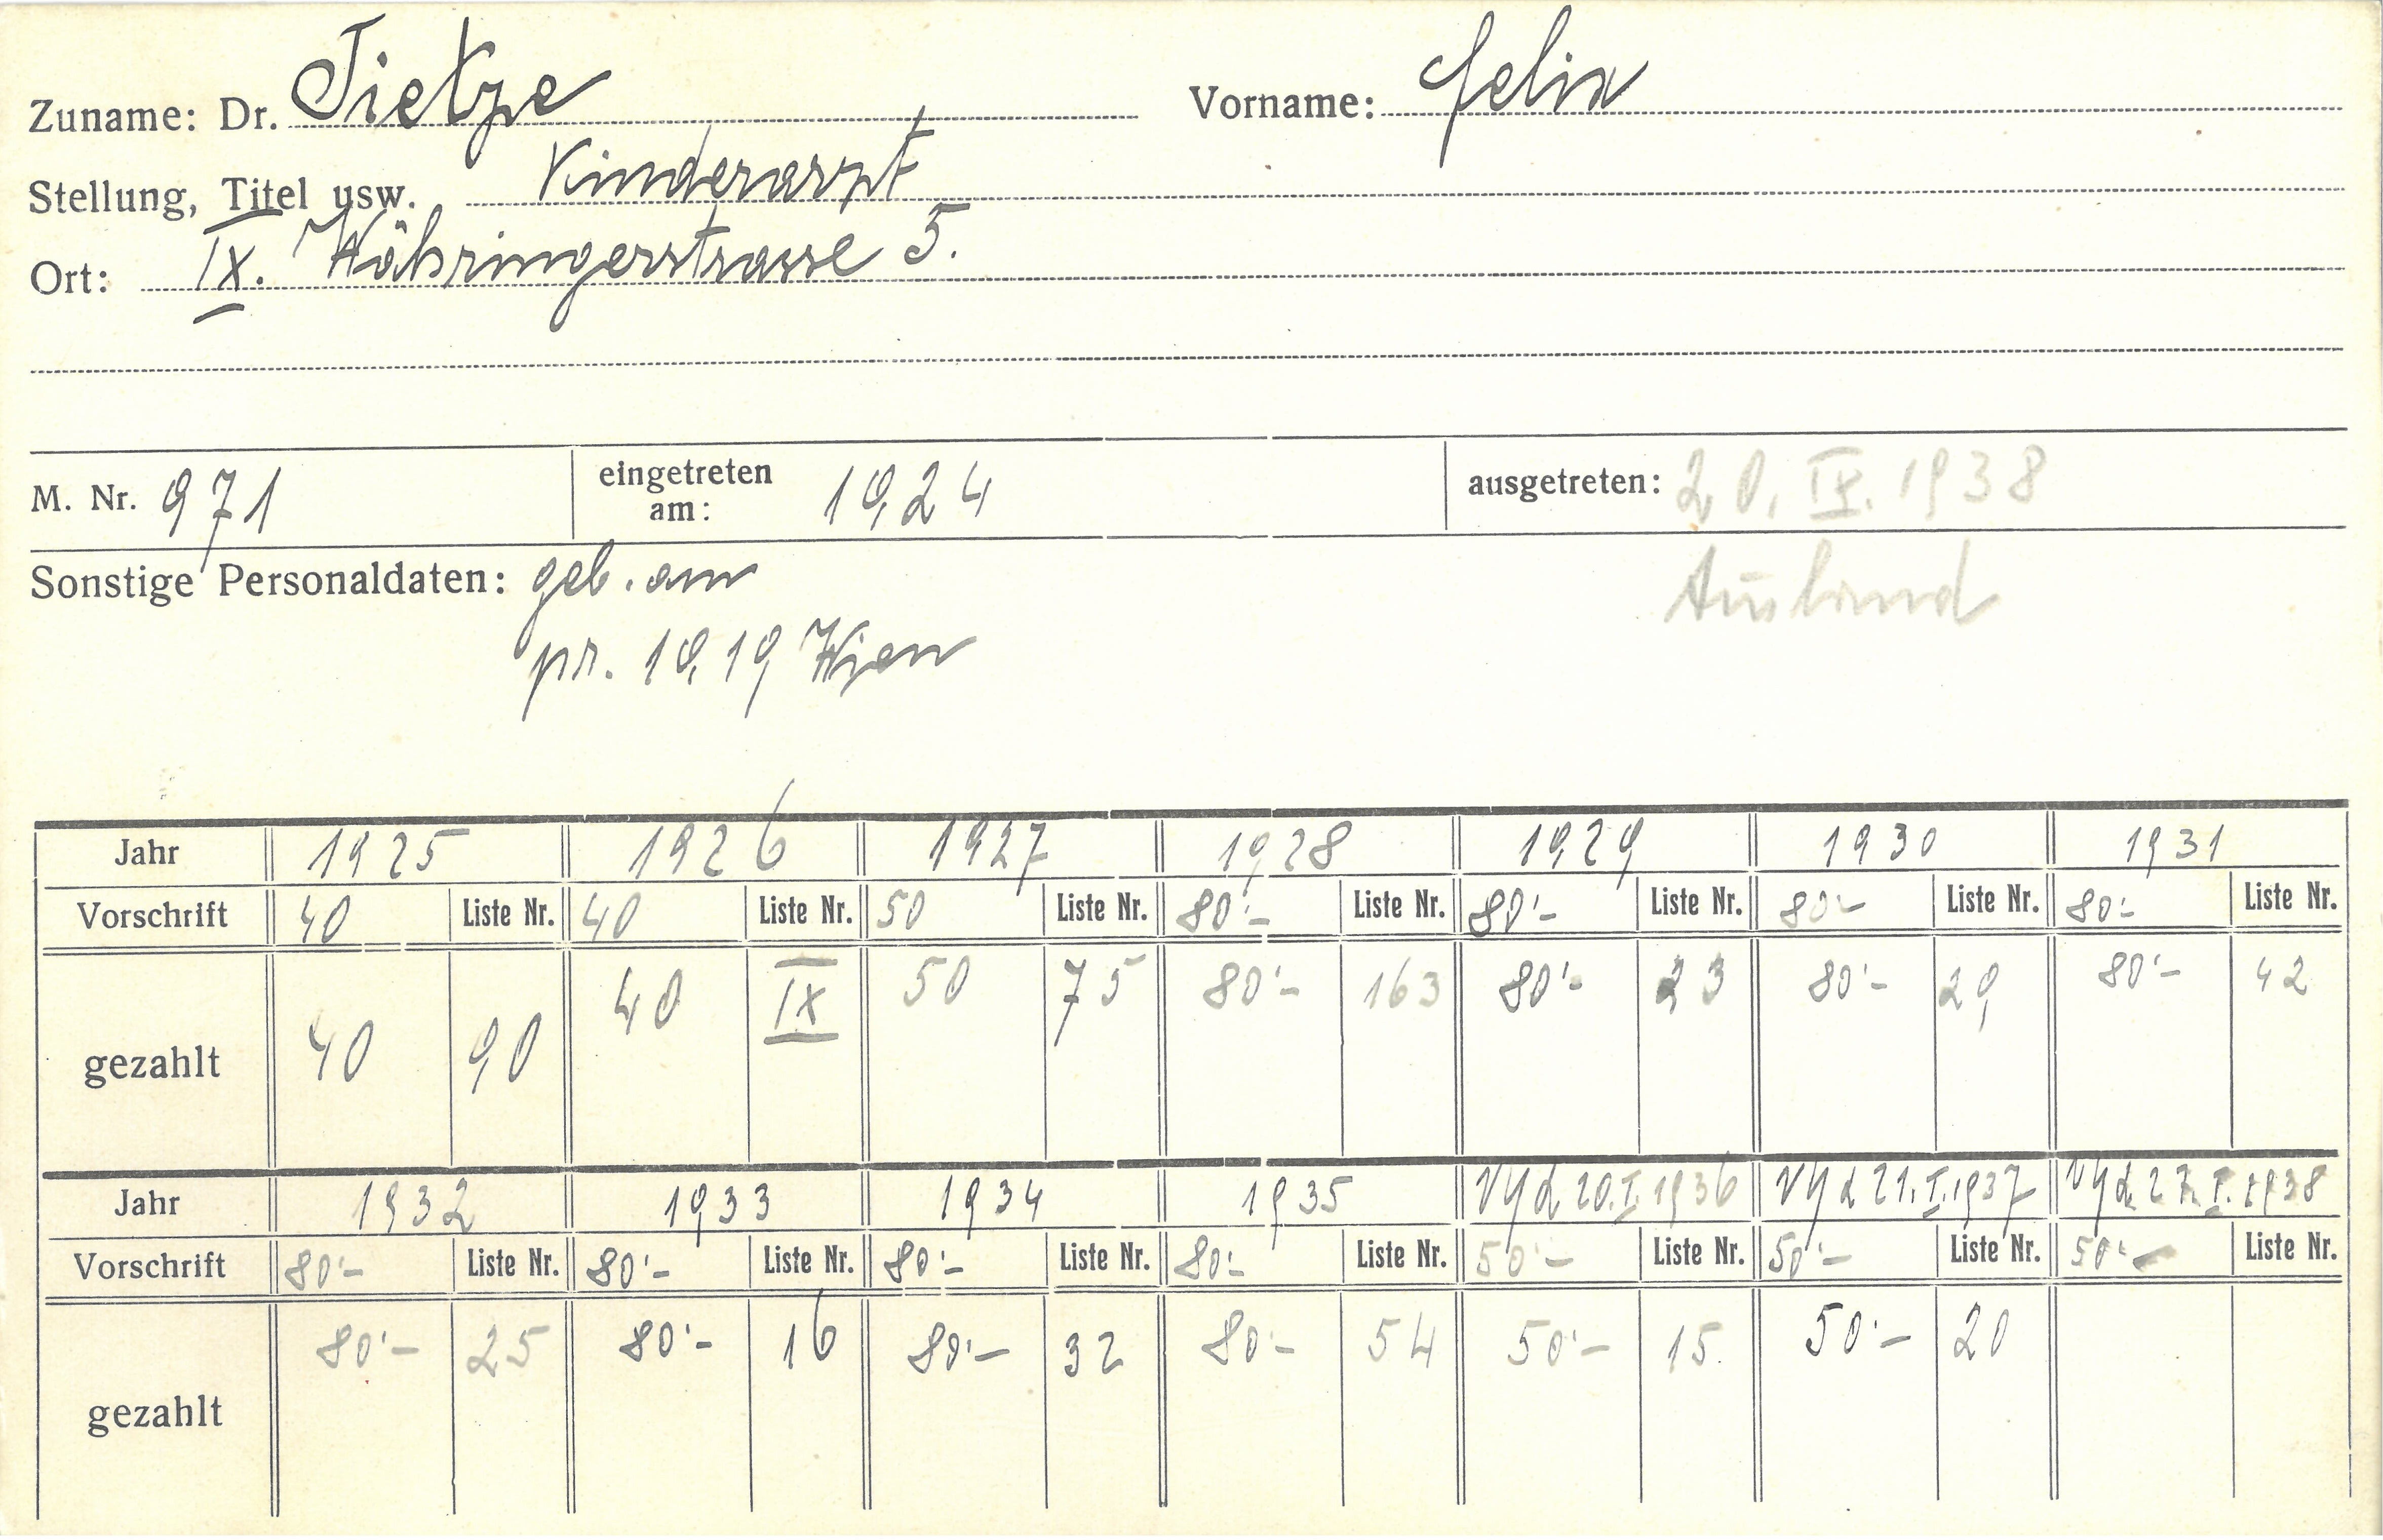 Zuname: Dr. Tietze Vorname: Felix
Stellung, Titel usw. Kinderarzt
Ort: IX. Währingerstrasse 5.
M. Nr. 971 eingetreten am: 1924 ausgetreten: 20. IX. 1938
Ausland
Sonstige Personaldaten: geb. am
pr. 1919 Wien
Jahr 1925 1926 1927 1928 1929 1930 1931
Vorschrift 40 Liste Nr. 40 Liste Nr. 50 Liste Nr. 80'- Liste Nr. 80'- Liste Nr. 80'- Liste Nr. 80'- Liste Nr.
gezahlt 40 90 40 IX 50 75 80'- 163 80'- 23 80'- 29 80'- 42
Jahr 1932 1933 1934 1935 20.I.1936 21.I.1937 27.I.1938
Vorschrift 80'- Liste Nr. 80'- Liste Nr. 80'- Liste Nr. 80'- Liste Nr. 50'- Liste Nr. 50'- Liste Nr. 50'- Liste Nr.
gezahlt 80'- 25 80'- 16 80'- 32 80'- 54 50'- 15 50'- 20